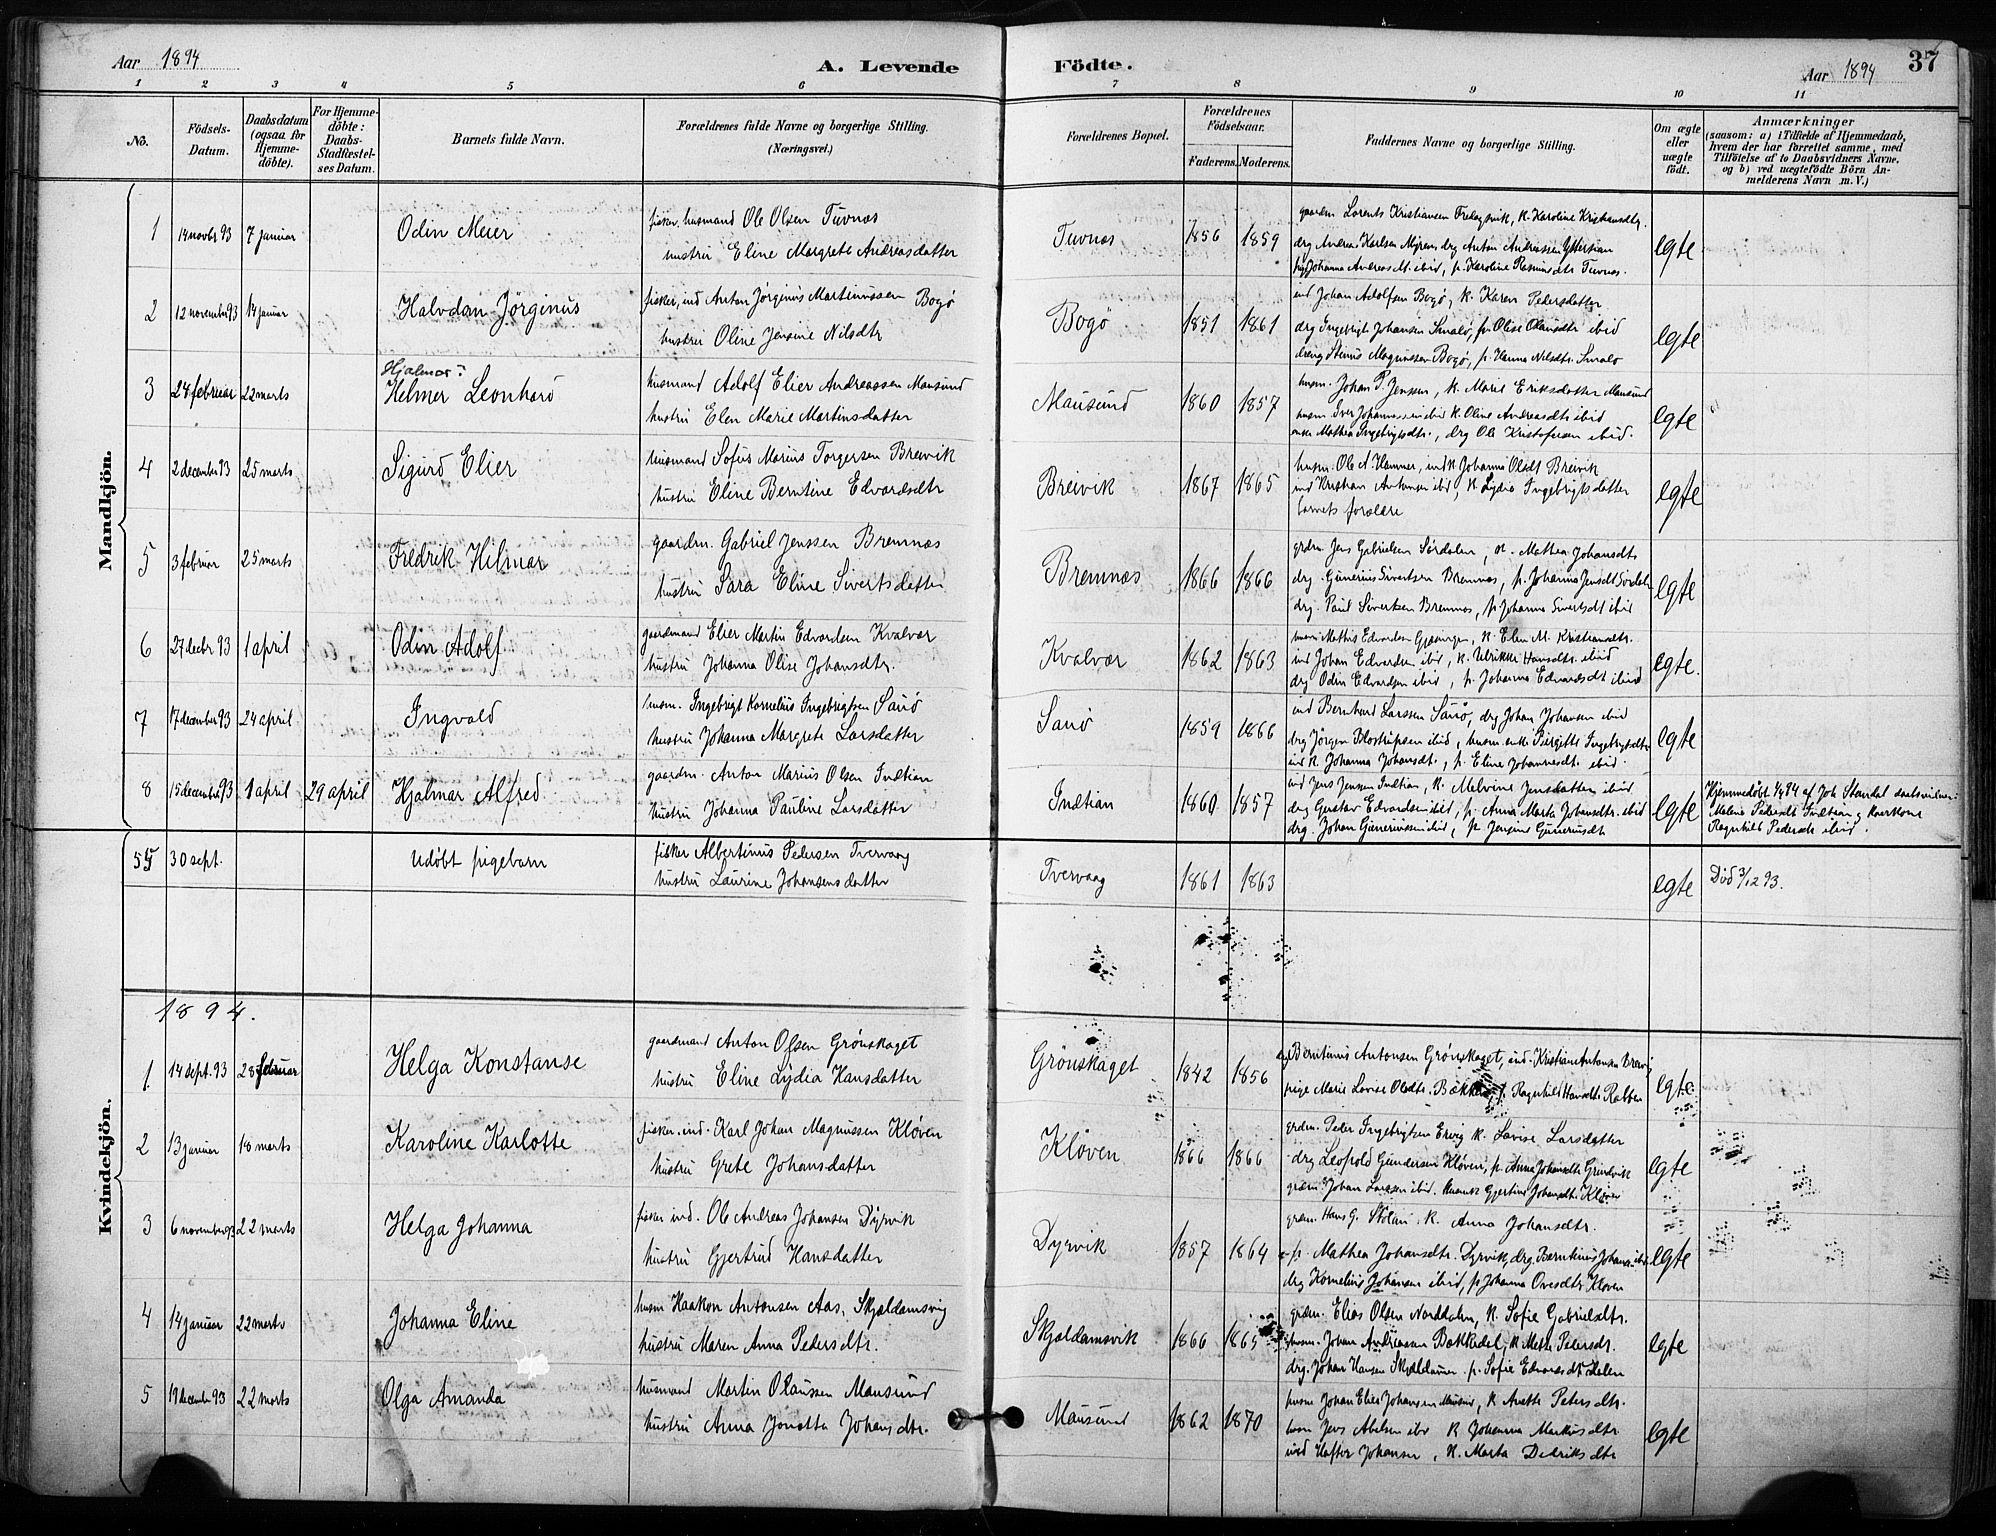 Aar 1894
A. Levende
Födte.
Aar 1894
37
1 2 3 4 5 6 7 8 9 10 11
No.
Födsels-
Datum.
Daabsdatum
(ogsaa for
Hjemme-
döbte).
For Hjemme-
döbte:
Daabs-
Stadfæstel-
ses Datum.
Barnets fulde Navn.
Forældrenes fulde Navne og borgerlige Stilling.
(Næringsvei.)
Forældrenes Bopæl.
Forældrenes
Födselsaar.
Faderens. Moderens.
Faddernes Navne og borgerlige Stilling.
Om ægte
eller
uægte
födt.
Anmærkninger
(saasom: a) i Tilfælde af Hjemmedaab,
hvem der har forrettet samme, med
Tilföielse af to Daabsvidners Navne.
og b) ved uægtefödte Börn An-
melderens Navn m. V.)
Mandkjön.
1 14 novbr 93 7 januar Odin Meier
fisker, husmand Ole Olsen Tuvnæs
hustru Eline Margrete Andreasdatter
Tuvnæs 1856 1859
gaardm Lorents Kristiansen Fredagsvik, k. Karoline Kristiansdtr.
drg Andreas Karlsen Myren, drg Anton Andreassen Yttersian
pige Johanna Andreasdt. ibid, p. Karoline Rasmusdtr Tuvnæs.
egte
2 12 november 93 14 januar Halvdan Jörginus
fisker, ind Anton Jörginus Martinussen Bogö
hustru Oline Jensine Nilsdtr
Bogö 1851 1861
ind Johan Adolfsen Bogö, k. Karen Pedersdatter
drg Ingebrigt Johansen Smalö, p. Olise Olausdtr ibid
dreng Stinus Magnussen Bogö, p. Hanna Nilsdtr. Smalö
egte
3 24 februar 22 marts Hjalmar:
Helmer Leonhard
husmand Adolf Elier Andreassen Mausund
hustru Elen Marie Martinsdatter
Mausund 1860 1857
husm. Johan P. Jenssen, k. Marie Eriksdatter Mausund
husm Iver Johannessen ibid k. Oline Andreasdtr ibid
enke Mathea Ingebrigtsdtr., drg Ole Kristofersen ibid.
egte
4 2 december 93 25 marts Sigurd Elier
husmand Sofus Marius Torgersen Breivik
hustru Eline Berntine Edvardsdtr
Breivik 1867 1865
husm. Ole A. Hammer, ind k Johanna Olsdt Breivik
ind Kristian Antonsen ibid, k. Lydia Ingebrigtsdatter
barnets forældre
egte
5 3 februar 25 marts Fredrik Hilmar
gaardm. Gabriel Jenssen Bremnæs
hustru Sara Eline Sivertsdatter
Bremnæs 1866 1866
grdm. Jens Gabrielsen Sördalen, k. Mathea Johansdtr
drg. Gunerius Sivertsen Bremnæs, p. Johanna Jensdt Sördalen
drg. Paul Sivertsen Bremnæs, p. Johanna Sivertsdt ibid
egte
6 27 decbr 93 1 april Odin Adolf
gaardmand Elier Martin Edvardsen Kvalvær
hustru Johanna Olise Johansdtr.
Kvalvær 1862 1863
husm Mathis Edvardsen Gjæsingen, k. Elen M. Kristiansdtr.
ind Johan Edvardsen ibid, k. Ulrikke Hansdtr. ibid
drg Odin Edvardsen ibid, p. Johanna Edvardsdt ibid
egte.
7 17 december 93 24 april Ingvald
husm. Ingebrigt Kornelius Ingebrigtsen Saurö
hustru Johanna Margrete Larsdatter
Saurö 1859 1866
ind Bernhard Larssen Saurö, drg Johan Johansen ibid
drg Jörgen ibid, husm. enke Birgitte Ingebrigtsdtr
ind k. Johanna Johansdt., p. Eline Johannesdt ibid.
egte
8 15 december 93 1 april 29 april Hjalmar Alfred
gaardm. Anton Marius Olsen Indtian
hustru Johanna Pauline Larsdatter
Indtian 1860 1857
ind Jens Jensen Indtian, k. Melvine Jensdatter ibid
drg Gustav Edvardsen ibid, p. Anna Marta Johansdtr. ibid
drg. Johan Gunerius­sen ibid, p. Jensine Gunerusdt
egte
Hjemmedöbt 1/4 94 af Joh Standal daabsvidner:
Malene Pedersdt Indtian og
Ragnhild Pedersdt ibid.
55 30 sept. Udöbt pigebarn
fisker Albertinus Pedersen Tvervaag
hustru Laurine Johansensdatter
Tvervaag 1861 1863 egte Död 3/12 93.
Kvindekjön.
1894.
1 14 sept. 93 28 februar Helga Konstanse
gaardmand Anton Olsen Grönskaget
hustru Eline Lydia Hansdatter
Grönskaget 1842 1856
drg Berntinus Antonsen Grönskaget, ind. Kristian Antonsen Breivig
pige Marie Lovise Olsdtr. Bækken, p. Ragnhild Hansdtr. Rabben
egte
2 13 januar 18 marts Karoline Karlotte
fisker. ind. Karl Johan Magnussen Klöven
hustru Grete Johansdatter
Klöven 1866 1866
grdm. Peder Ingebrigtsen Ervig k. Lovise Larsdatter
drg Leopold Gundersen Klöven, p. Anna Johansdtr Grundvik
grdm Johan Larssen ibid. Gjertine Johansdtr. Klöven
egte
3 6 november 93 22 marts Helga Johanna
fisker ind. Ole Andreas Johansen Dyrvik
hustru Gjertrud Hansdatter
Dyrvik 1857 1864
grdm. Hans G. Stölan, k. Anna Johansdtr.
p. Mathea Johansdtr. Dyrvik, drg. Berntinus Johansen ibid
drg Kornelius Johansen ibid, p. Johanna Ovesdtr Klöven
egte
4 14 januar 22 marts Johanna Eline
husm Haakon Antonsen Aas, Skjældamsvig
hustru Maren Anna Pedersdtr.
Skjældamsvik 1866 1865
grdm. Elias Olsen Norddalen, k. Sofie Gabrielsdtr.
husm. Johan Andreassen Bækkedal, k. Mette Petersdt.
drg. Johan Hansen Skjældamen p. Sofie Edvardsdt Dalen
egte
5 19 december 93 22 marts Olga Amanda
husmand Martin Olaussen Mausund
hustru Anna Jonetta Johansdtr.
Mausund 1862 1870
husm Johan Elias Johansen Mausund, k. Anette Petersdtr.
husm Jens Abelsen ibid k Johanna Markusdtr
ind Hafter Johansen, k. Marta Dedriksdtr
egte